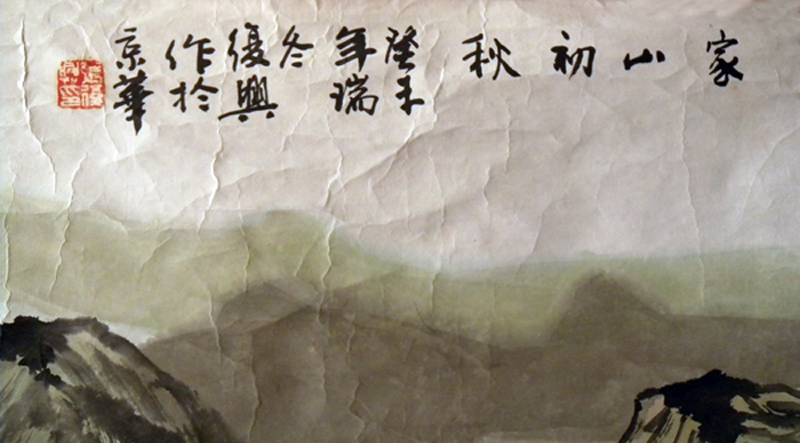 家山初秋
癸未
年瑞
冬
復興
作於
京華